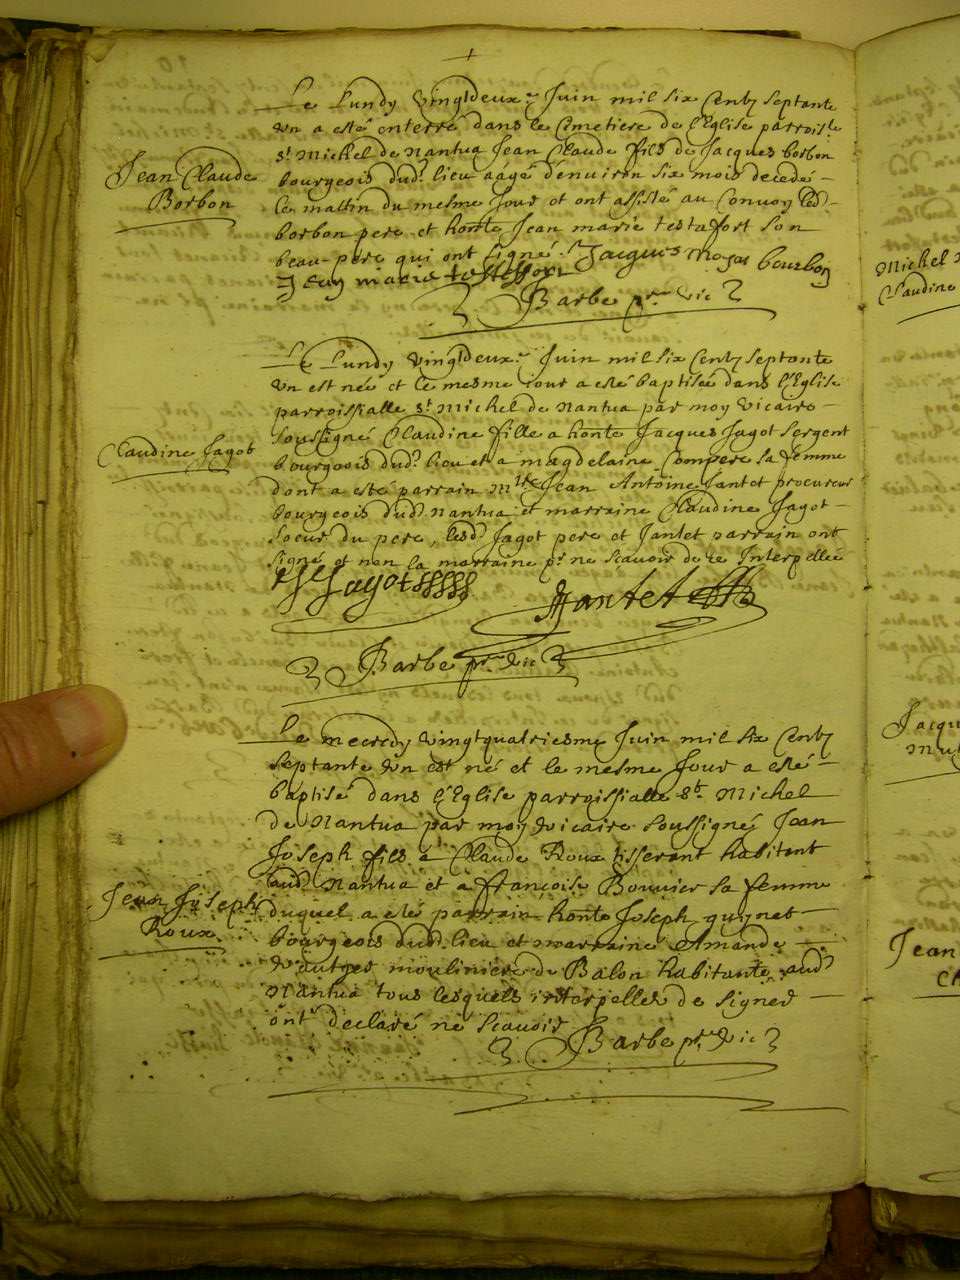 Jean Claude
Borbon
Le Lundy vingtdeuxe Juin mil six Centz septante
vn a esté enterré dans le Cimetiere de l'Eglise parroisle
st Michel de Nantua Jean Claude fils de Jacques borbon
bourgeois dudt lieu aagé denuiron six mois decedé
le mattin du mesme Jour et ont assisté au Convoy led
borbon pere et honte Jean marie testafort son
beau-pere qui ont signé Jacques bourbon
Jean marie
Barbe pre vic
Claudine Jagot
Le Lundy vingtdeuxe Juin mil six Centz septante
vn est née et le mesme iour a esté baptisée dans l'Eglise
parroissialle st Michel de Nantua par moy vicaire
soussigné Claudine fille a honte Jacques Jagot sergent
bourgeois dudt lieu et a magdelaine Compere sa femme
dont a esté parrain Mtre Jean Antoine Jantet procureur
bourgeois dudt Nantua et marraine Claudine Jagot
soeur du pere, lesdt Jagot pere et Jantet parrain ont
signé et non la marraine pr ne scauoir de ce Interpellée
Jagot Jantet
Barbe pre vic
Jean Joseph
Roux
Le mecredy vingtquatriesme Juin mil six Centz
septante vn est né et le mesme Jour a esté
baptisé dans l'Eglise parroissialle st Michel
de Nantua par moy vicaire soussigné Jean
Joseph fils a Claude Roux tisserant habitant
audt Nantua et a françoise Bouuier sa femme
duquel a esté parrain honte Joseph guynet
bourgeois dudt lieu et marraine Amande
mouliniere de Balon habitante audt
Nantua tous lesquels interpelles de signer
ont declaré ne scauoir
Barbe pre vic
Michel
Claudine
Jacqu
Jean